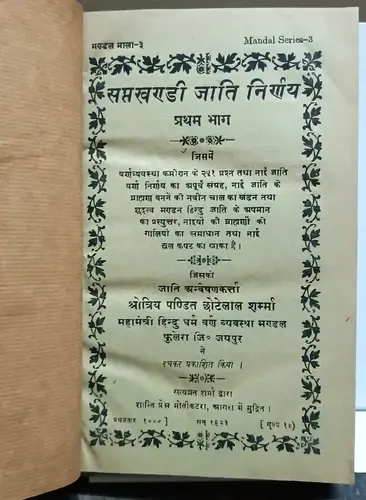 मण्डल माला-३ Mandal Series-3
सप्तखण्डी जाति निर्णय
प्रथम भाग
जिसमें
वर्णव्यवस्था कमीशन के २५१ प्रश्न तथा नाई जाति
वर्ण निर्णय का अपूर्व संग्रह, नाई जाति के
ब्राह्मण बनने की नवीन चाल का खंडन तथा
शूद्रत्व मण्डन हिन्दु जाति के अपमान
का प्रत्युत्तर, नाइयों की ब्राह्मणों की
गालियों का समाधान तथा नाई
छल कपट का खाका है।
जिसको
जाति अन्वेषणकर्त्ता
श्रोत्रिय पण्डित छोटेलाल शर्म्मा
महामंत्री हिन्दु धर्म वर्ण व्यवस्था मण्डल
फुलेरा जि० जयपुर
ने
रचकर प्रकाशित किया।
सत्यव्रत शर्मा द्वारा
शान्ति प्रेस मोतीकटरा, आगरा में मुद्रित।
प्रथमवार १००० सन् १९२१ [ मूल्य